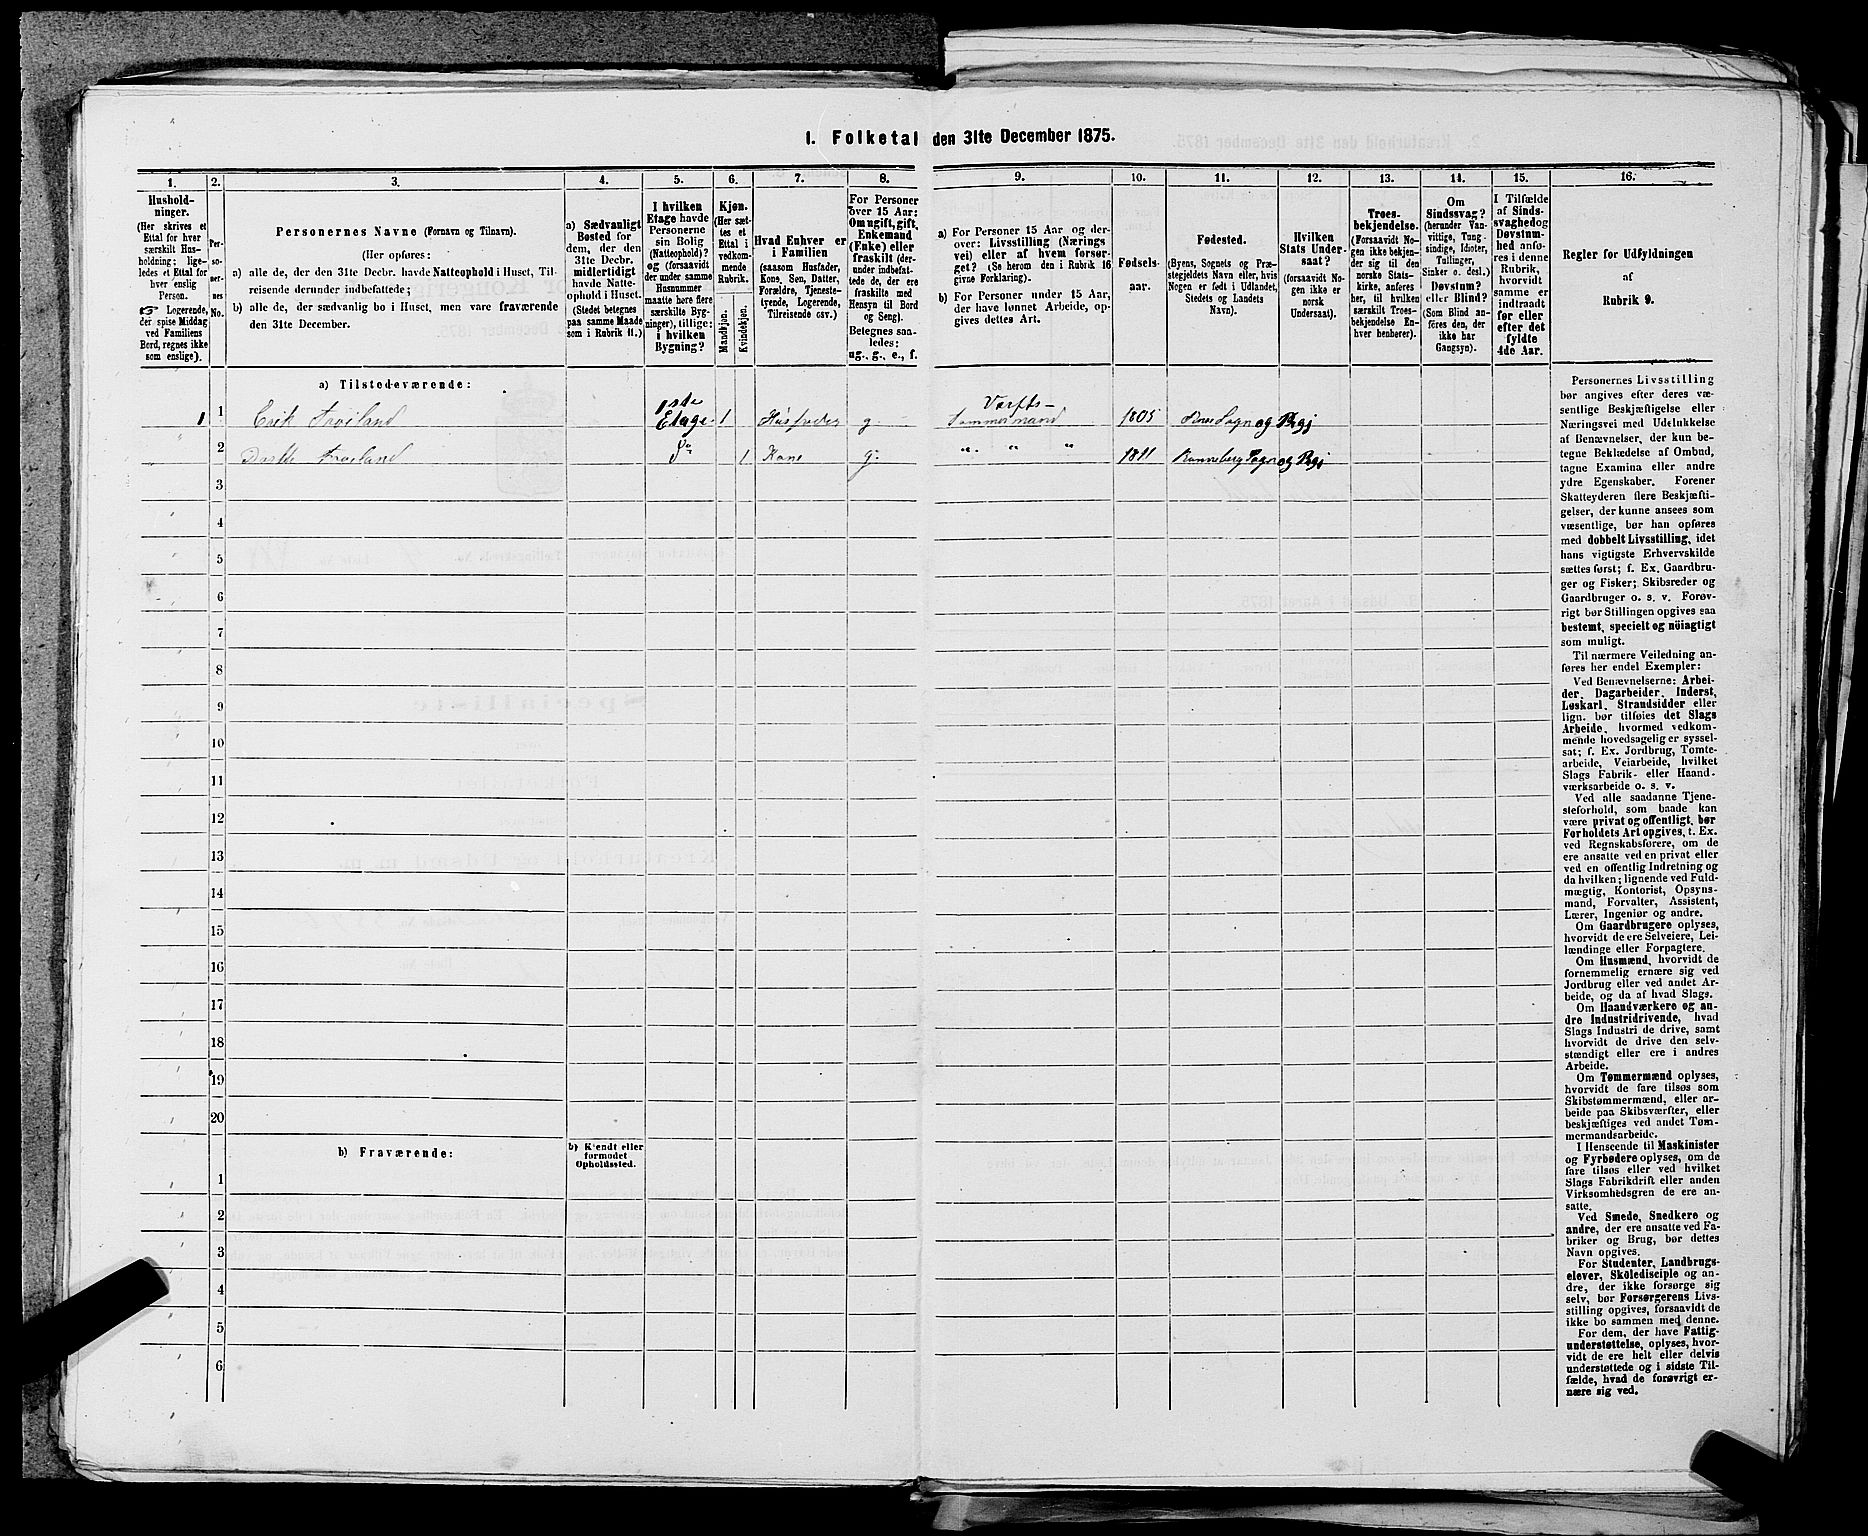 1. Folketal den 31te December 1875.
1. 2. 3. 4. 5. 6. 7. 8. 9. 10. 11. 12. 13. 14. 15. 16.
Hushold-
ninger.
(Her skrives et
Ettal for hver
særskilt Hus-
holdning; lige-
ledes et Ettal for
hver enslig
Person.
☞ Logerende,
der spise Middag
ved Familiens
Bord, regnes ikke
som enslige).
Per-
so-
ner-
nes
No.
Personernes Navne (Fornavn og Tilnavn).
(Her opføres:
a) alle de, der den 31te Decbr. havde Natteophold i Huset, Til-
reisende derunder indbefattede;
b) alle de, der sædvanlig bo i Huset, men vare fraværende
den 31te December.
a) Sædvanligt
Bosted for
dem, der den
31te Decbr.
midlertidigt
havde Natte-
ophold i Huset.
(Stedet betegnes
paa samme Maade
som i Rubrik 11.)
I hvilken
Etage havde
Personerne
sin Bolig
(Natteophold)?
og (forsaavidt
der under samme
Husnummer
maatte høre flere
særskilte Byg-
ninger), tillige:
i hvilken
Bygning?
Kjøn.
(Her sæt-
tes et
Ettal i
vedkom-
mende
Rubrik.
Mandkjøn.
Kvindekjøn.
Hvad Enhver er
i Familien
(saasom Husfader,
Kone, Søn, Datter,
Forældre, Tjeneste-
tyende, Logerende,
Tilreisende osv.)
For Personer
over 15 Aar:
Om ugift, gift,
Enkemand
(Enke) eller
fraskilt (der-
under indbefat-
tede de, der ere
fraskilte med
Hensyn til Bord
og Seng).
Betegnes saa-
ledes:
ug., g., e., f.
a) For Personer 15 Aar og der-
over: Livsstilling (Nærings
vei) eller af hvem forsør-
get? (Se herom den i Rubrik 16
givne Forklaring).
b) For Personer under 15 Aar,
der have lønnet Arbeide, op-
gives dettes Art.
Fødsels-
aar.
Fødested.
(Byens, Sognets og Præ-
stegjeldets Navn eller, hvis
Nogen er født i Udlandet,
Stedets og Landets
Navn).
Hvilken
Stats Under-
saat?
(forsaavidt No-
gen ikke er
norsk
Undersaat).
Troes-
bekjendelse.
(Forsaavidt No-
gen ikke bekjen-
der sig til den
norske Stats-
kirke, anføres
her, til hvilken
særskilt Troes-
bekjendelse En-
hver henhører).
Om
Sindssvag?
(herunder Van-
vittige, Tung-
sindige, Idioter,
Tullinger,
Sinker o. desl.)
Døvstum?
eller Blind?
(Som Blind an-
føres den, der
ikke har
Gangsyn).
I Tilfælde
af Sinds-
svaghed og
Døvstum-
hed anfø-
res i denne
Rubrik,
hvorvidt
samme er
indtraadt
før eller
efter det
fyldte
4de Aar.
Regler for Udfyldningen
af
Rubrik 9.
a) Tilstedeværende:
1 1 Erik Frøiland 1ste Etage. 1 Husfader g. Værfts-Tømmermand 1805 Sogn og Prgj
2 Frøiland Do 1 Kone g. " " " 1811 Renneberg Sogn og Prgj
3
4
5
6
7
8
9
10
11
12
13
14
15
16
17
18
19
20
b) Fraværende:
b) Kjendt eller
formodet
Opholdssted.
1
2
3
4
5
6
Personernes Livsstilling
bør angives efter deres væ-
sentlige Beskjæftigelse eller
Næringsvei med Udelukkelse
af Benævnelser, der kun be-
tegne Beklædelse af Ombud,
tagne Examina eller andre
ydre Egenskaber. Forener
Skatteyderen flere Beskjæfti-
gelser, der kunne ansees som
væsentlige, bør han opføres
med dobbelt Livsstilling, idet
hans vigtigste Erhvervskilde
sættes først; f. Ex. Gaardbru-
ger og Fisker; Skibsreder og
Gaardbruger o. s. v. Forøv-
rigt bør Stillingen opgives saa
bestemt, specielt og nöiagtigt
som muligt.
Til nærmere Veiledning an-
føres her endel Exempler:
Ved Benævnelserne: Arbei-
der, Dagarbeider, Inderst,
Løskarl, Strandsidder eller
lign. bør tilføies det Slags
Arbeide, hvormed vedkom-
mende hovedsagelig er syssel-
sat; f. Ex. Jordbrug, Tomte-
arbeide, Veiarbeide, hvilket
Slags Fabrik- eller Haand-
værksarbeide o. s. v.
Ved alle saadanne Tjene-
steforhold, som baade kan
være privat og offentligt, bør
Forholdets Art opgives, t. Ex.
ved Regnskabsførere, om de
ere ansatte ved en privat eller
ved en offentlig Indretning og
da hvilken; lignende ved Fuld-
mægtig, Kontorist, Opsyns-
mand, Forvalter, Assistent,
Lærer, Ingeniør og andre.
Om Gaardbrugere oplyses,
hvorvidt de ere Selveiere, Lei-
lændinge eller Forpagtere.
Om Husmænd, hvorvidt de
fornemmelig ernære sig ved
Jordbrug eller ved andet Ar-
beide, og da af hvad Slags.
Om Haandværkere og an-
dre Industridrivende, hvad
Slags Industri de drive, samt
hvorvidt de drive den selv-
stændigt eller ere i andres
Arbeide.
Om Tømmermænd oplyses,
hvorvidt de fare tilsøs som
Skibstømmermænd, eller ar-
beide paa Skibsværfter, eller
beskjæftiges ved andet Tøm-
mermandsarbeide.
I Henseende til Maskinister
og Fyrbødere oplyses, om de
fare tilsøs eller ved hvilket
Slags Fabrikdrift eller anden
Virksomhedsgren de ere an-
satte.
Ved Smede, Snedkere og
andre, der ere ansatte ved Fa-
briker og Brug, bør dettes
Navn opgives.
For Studenter, Landbrugs-
elever, Skoledisciple og an-
dre, der ikke forsørge sig
selv, bør Forsørgerens Livs-
stilling opgives, forsaavidt de
ikke bo sammen med denne.
For dem, der have Fattig-
understøttelse, oplyses, hvor-
vidt de ere helt eller delvis
understøttede og i sidste Til-
fælde, hvad de forøvrigt er-
nære sig ved.